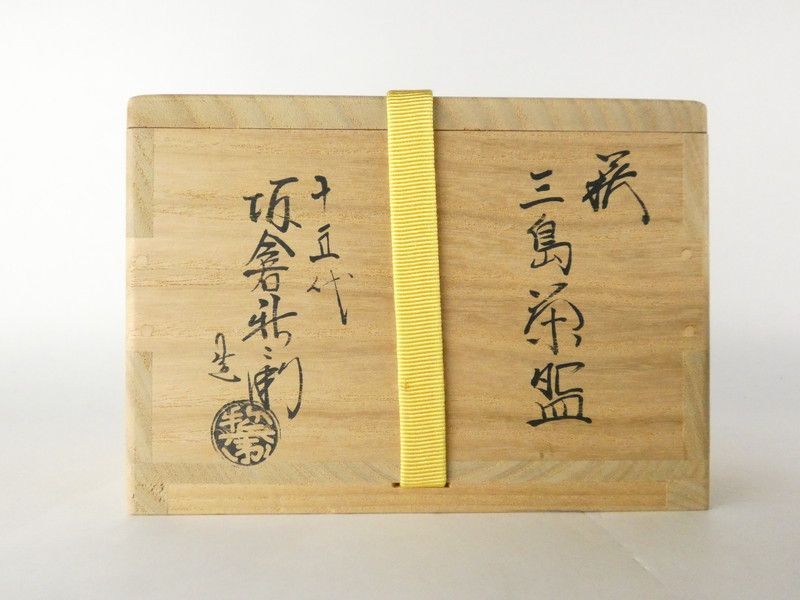 萩
三島茶盌
十五代
坂倉新兵衛
造